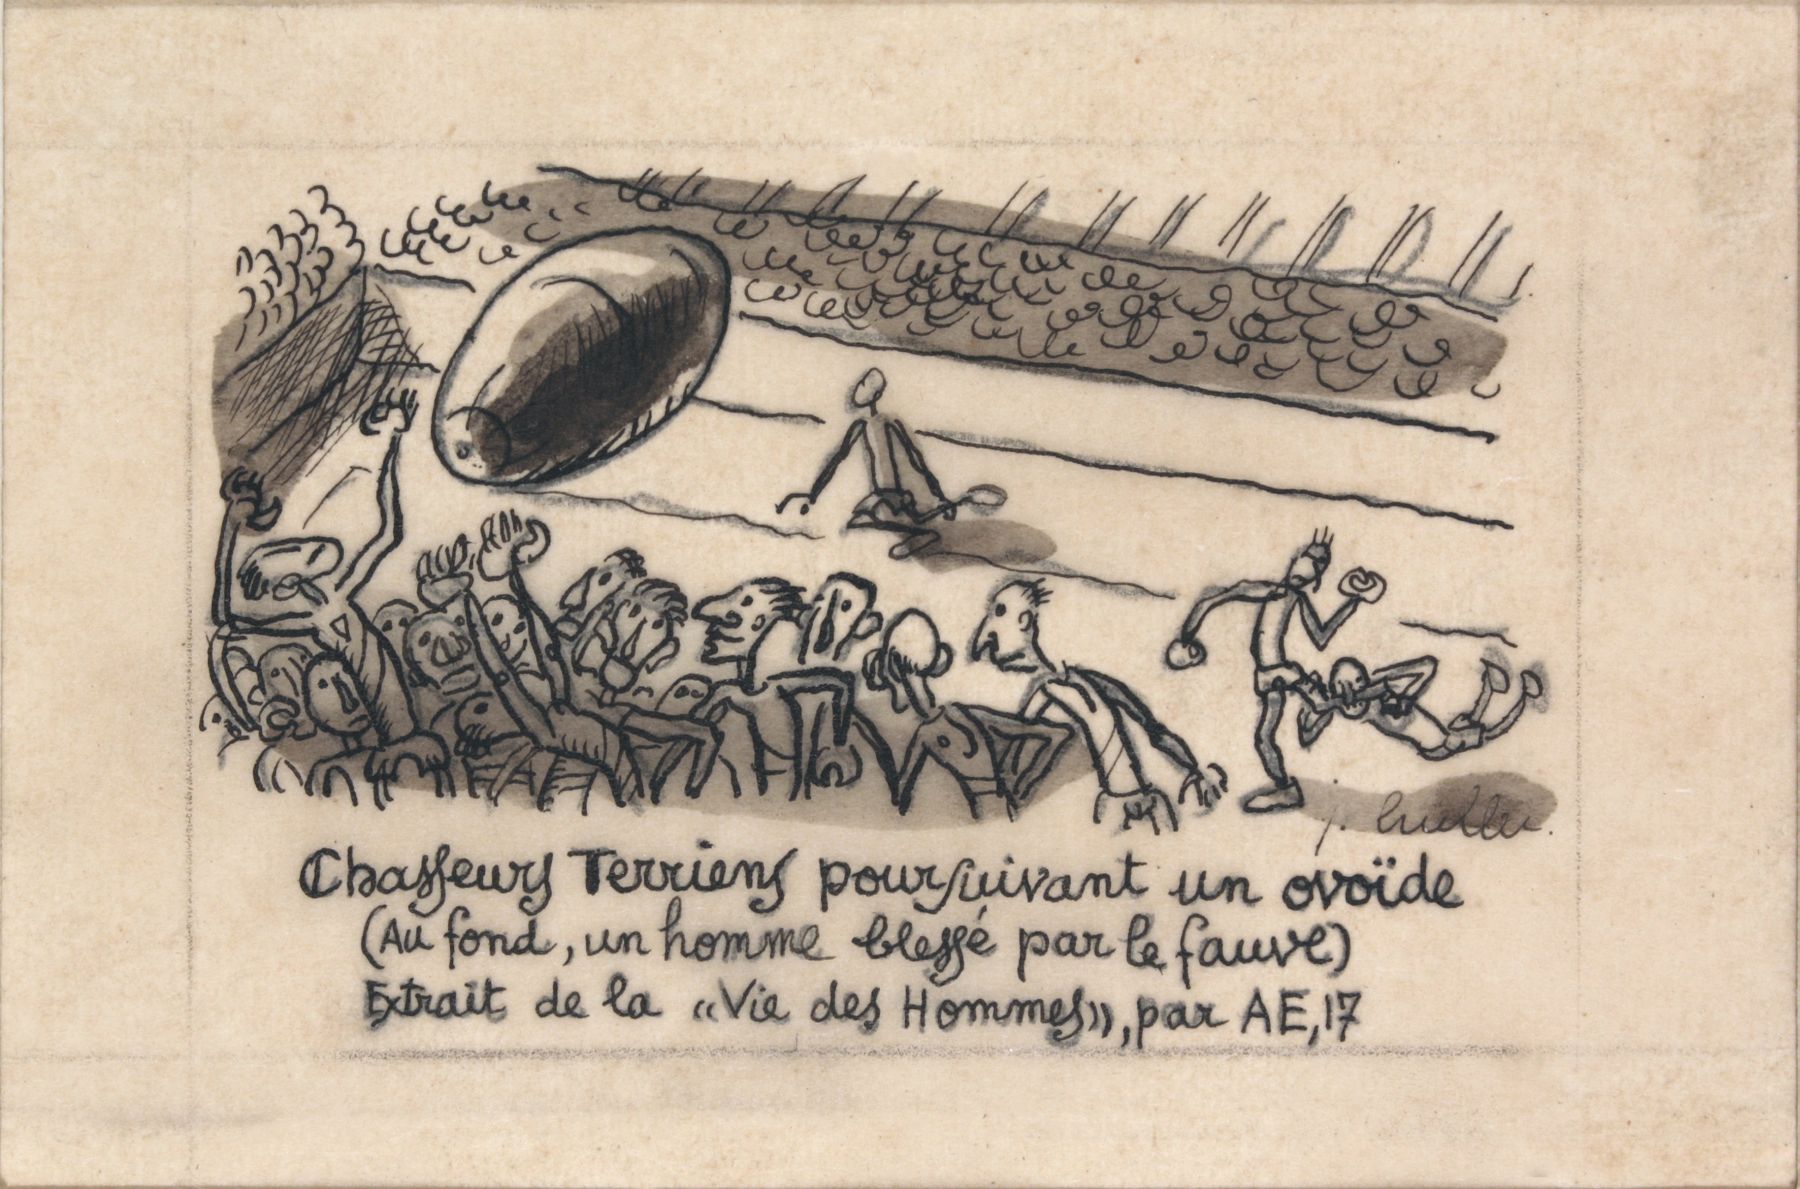 Chasseurs Terriens poursuivant un ovoïde
(Au fond, un homme blessé par le fauve)
Extrait de la «Vie des Hommes», par AE,17